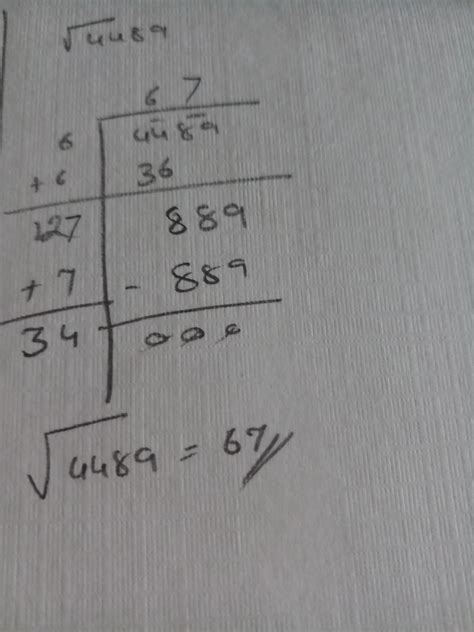 √4489
6 7
6 4489
+6 36
127 889
+7 - 889
34 000
√4489 = 67//